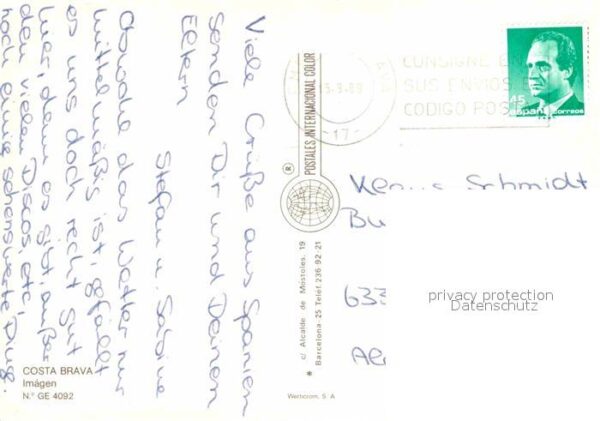 Viele Grüße aus Spanien
senden Dir und Deinen
Eltern
Stefan u. Sabine
Obwohl das Wetter nur
mittelmäßig ist, gefällt
es uns doch recht gut
hier, denn es gibt außer
den vielen Discos, etc.
noch einige sehenswerte Dinge.
COSTA BRAVA
Imágen
N.º GE 4092
POSTALES INTERNACIONAL COLOR
®
c/ Alcalde de Móstoles, 19
Barcelona-25 Teléf. 236 92 21
Werncrom, S A
5-9-89
-17-
CONSIGNE EN
SUS ENVIOS
CODIGO POST
45
españa
correos
Schmidt
Bu
633
privacy protection
Datenschutz